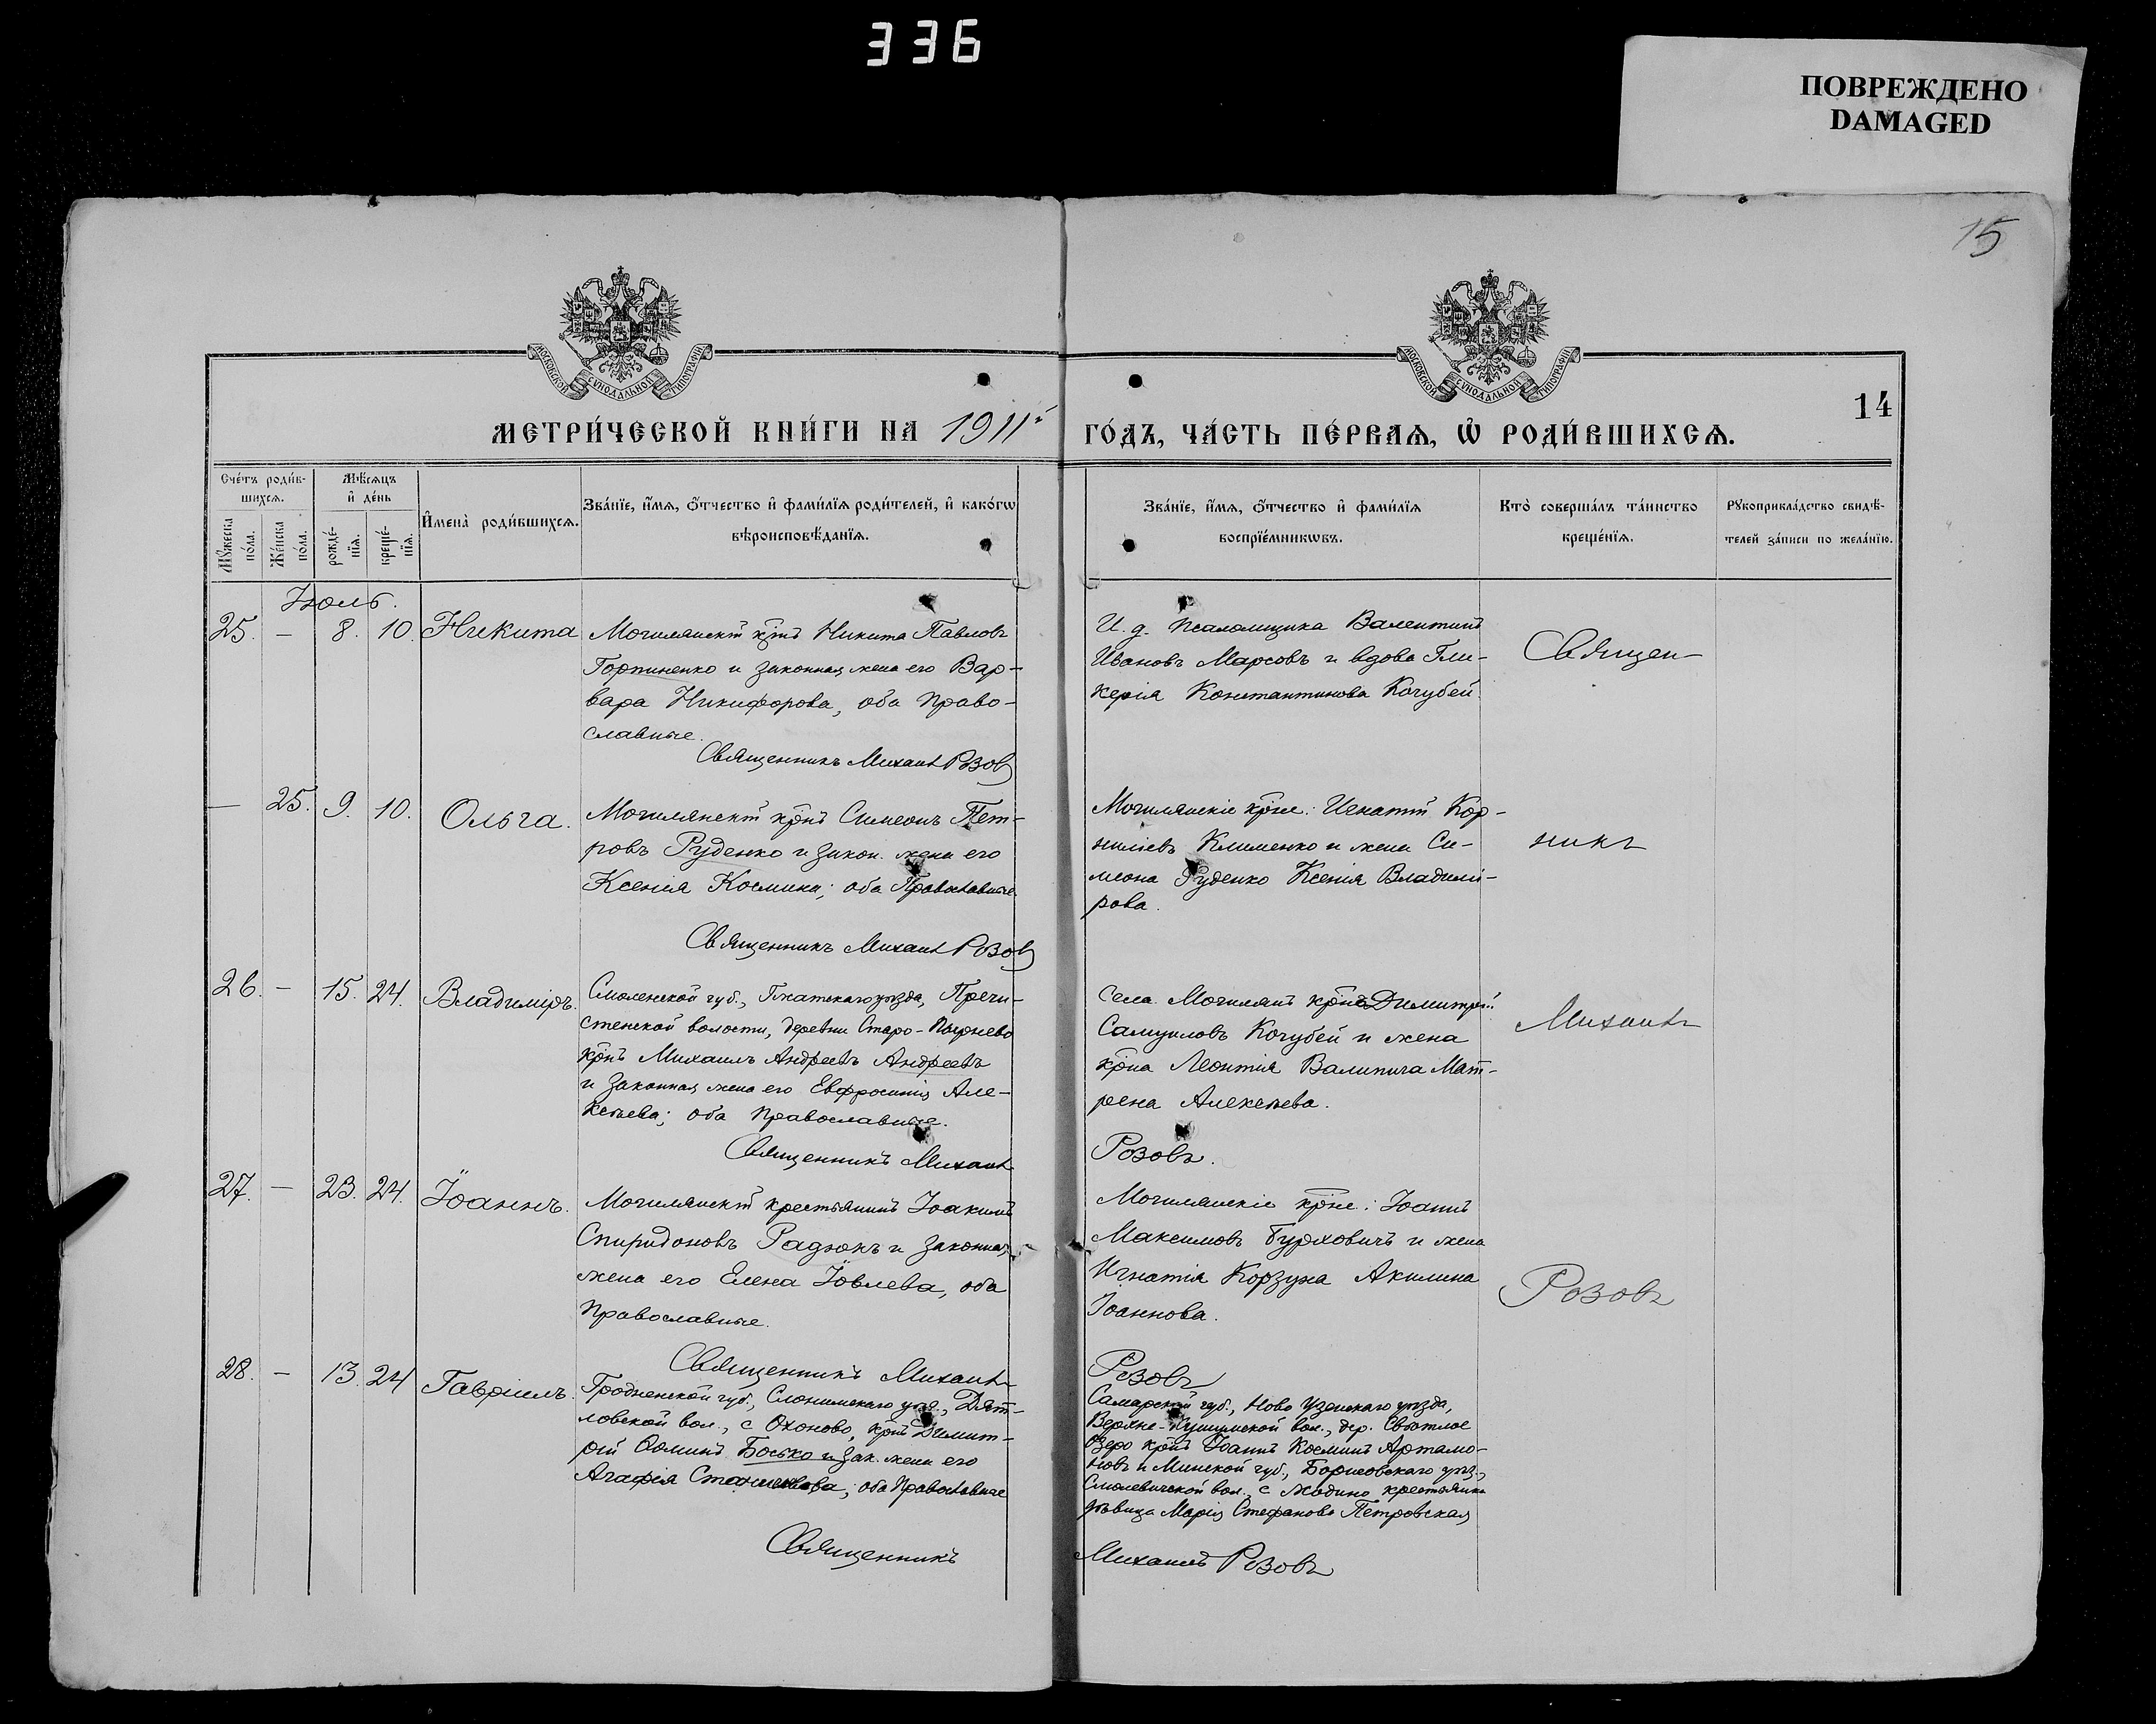 336
ПОВРЕЖДЕНО
DAMAGED
15
МОСКОВСКОЙ СѴНОДАЛЬНОЙ ТИПОГРАФІИ
МОСКОВСКОЙ СѴНОДАЛЬНОЙ ТИПОГРАФІИ
14
МЕТРИ́ЧЕСКОЙ КНИ́ГИ НА 1911й
ГО́ДЪ, ЧА́СТЬ ПЕ́РВАѦ, Ѡ҆ РОДИ́ВШИХСѦ.
Сче́тъ роди́в-
шихсѧ.
Мꙋжеска по́ла.
Же́нска по́ла.
Мѣ́сѧцъ
и҆ де́нь
рожде́-
нїѧ.
креще́-
нїѧ.
И҆мена̀ роди́вшихсѧ.
Зва́нїе, и҆́мѧ, ѻ҆́тчество и҆ фами́лїѧ роди́телей, и҆ како́гѡ
вѣроисповѣ́данїѧ.
Зва́нїе, и҆́мѧ, ѻ҆́тчество и҆ фами́лїѧ
воспрїе́мникѡвъ.
Кто̀ соверша́лъ та́инство
креще́нїѧ.
Рꙋкоприкла́дство свидѣ́-
телей за́писи по жела́нїю.
Іюль.
25. — 8. 10. Никита
Могилянскій крнъ Никита Павловъ
Горпиненко и законная жена его Вар-
вара Никифорова, оба право-
славные.
Священникъ Михаилъ Розовъ
И. д. псаломщика Валентинъ
Ивановъ Марсовъ и вдова Гли-
керія Константинова Кочубей.
Священ-
— 25. 9. 10. Ольга.
Могилянскій крнъ Симеонъ Пет-
ровъ Руденко и закон. жена его
Ксенія Космина; оба Православные
Священникъ Михаилъ Розовъ
Могилянскіе крне: Игнатій Кор-
ниліевъ Клименко и жена Си-
меона Руденко Ксенія Владими-
рова.
никъ
26. — 15. 24. Владиміръ.
Смоленской губ., Гжатскаго уѣзда, Пречи-
стенской волости, деревни Старо-
крнъ Михаилъ Андреевъ Андреевъ
и законная жена его Евфросинія Але-
ксѣева; оба православные.
Священникъ Михаилъ
Села Могилянъ крнъ Димитрій
Самуиловъ Кочубей и жена
крна Леонтія Валипича Мат-
рена Алексѣева.
Розовъ.
Михаилъ
27. — 23. 24. Іоаннъ.
Могилянскій крестьянинъ Іоакимъ
Спиридоновъ Радюкъ и законная
жена его Елена Іовлева, оба
православные.
Священникъ Михаилъ
Могилянскіе крне: Іоаннъ
Максимовъ Бурховичъ и жена
Игнатія Корзуна Акилина
Іоаннова.
Розовъ
Розовъ
28. — 13. 24 Гавріилъ.
Гродненской губ., Слонимскаго уѣз., Дят-
ловской вол., с Охоново, крнъ Димит-
рій Ѳоминъ Босько и зак. жена его
Агафія; оба Православные
Священникъ
Самарской губ., Ново Узенскаго уѣзда,
Верхне-Кушумской вол., дер. Свѣтлое
Озеро крнъ Іоаннъ Косминъ Артамо-
новъ и Минской губ., Борисовскаго уѣз.,
Смолевичской вол. с Жодино крестьянка
дѣвица Марія Стефанова Петровская
Михаилъ Розовъ